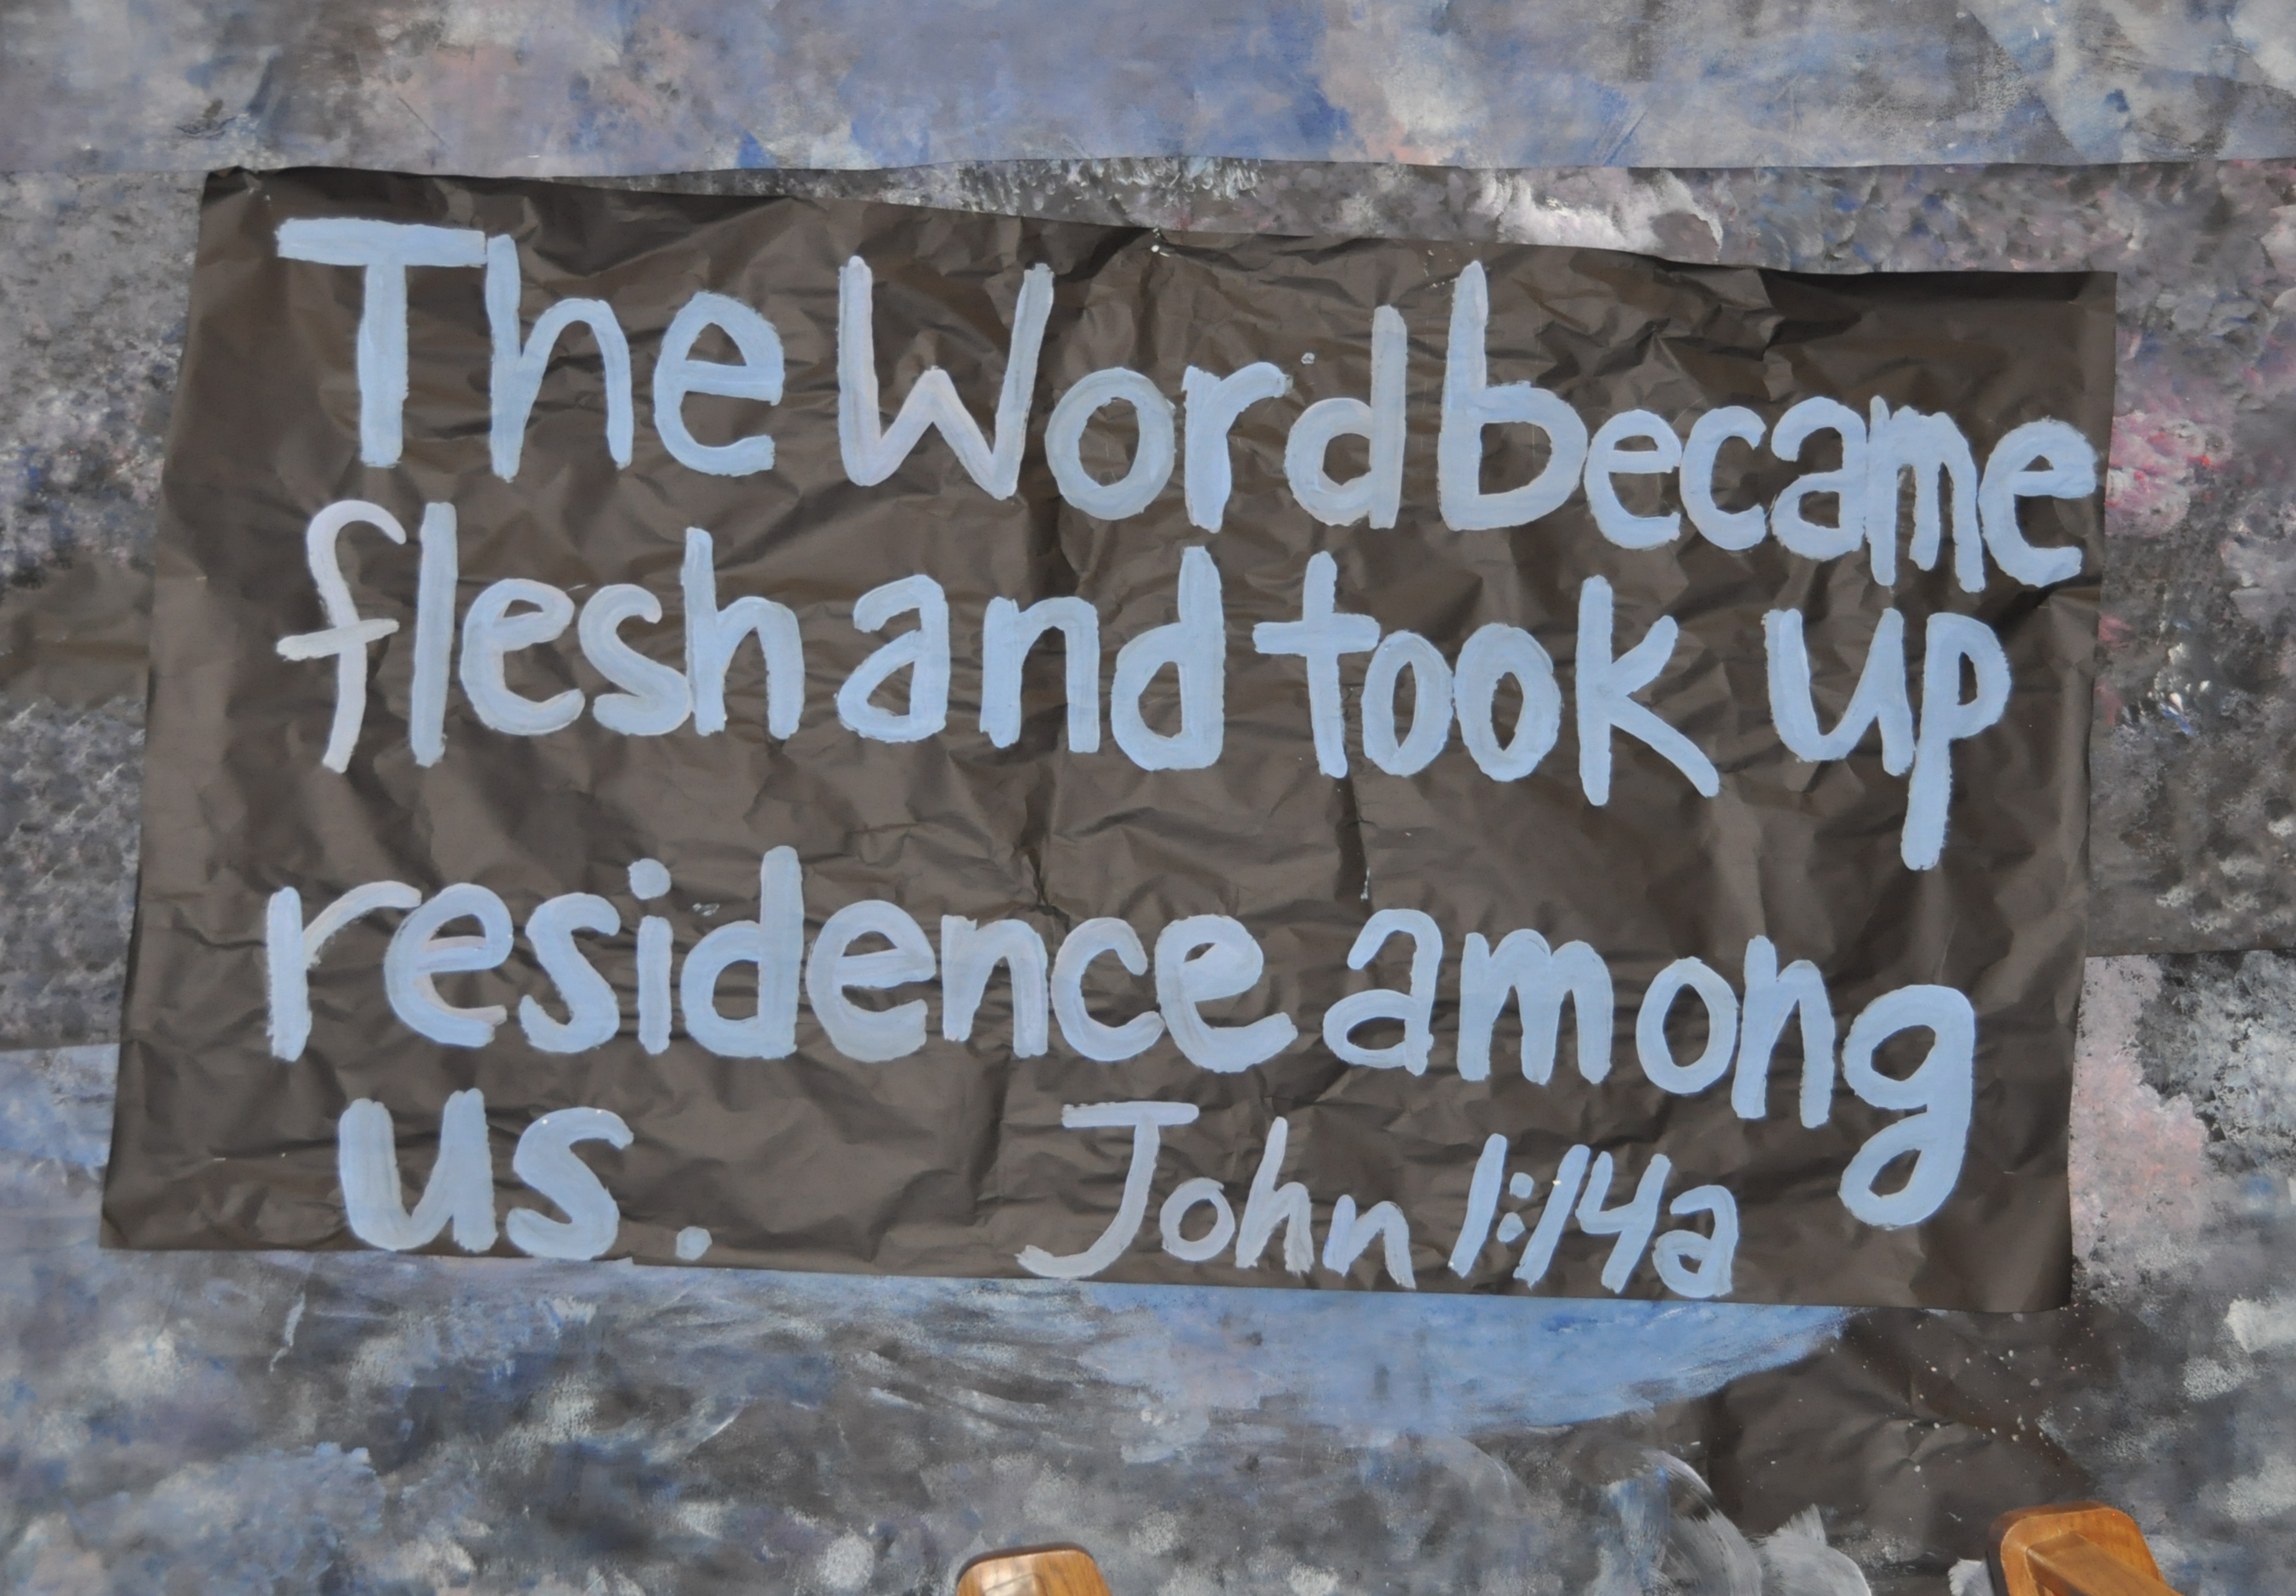 The Word became
flesh and took up
residence among
us. John 1:14a